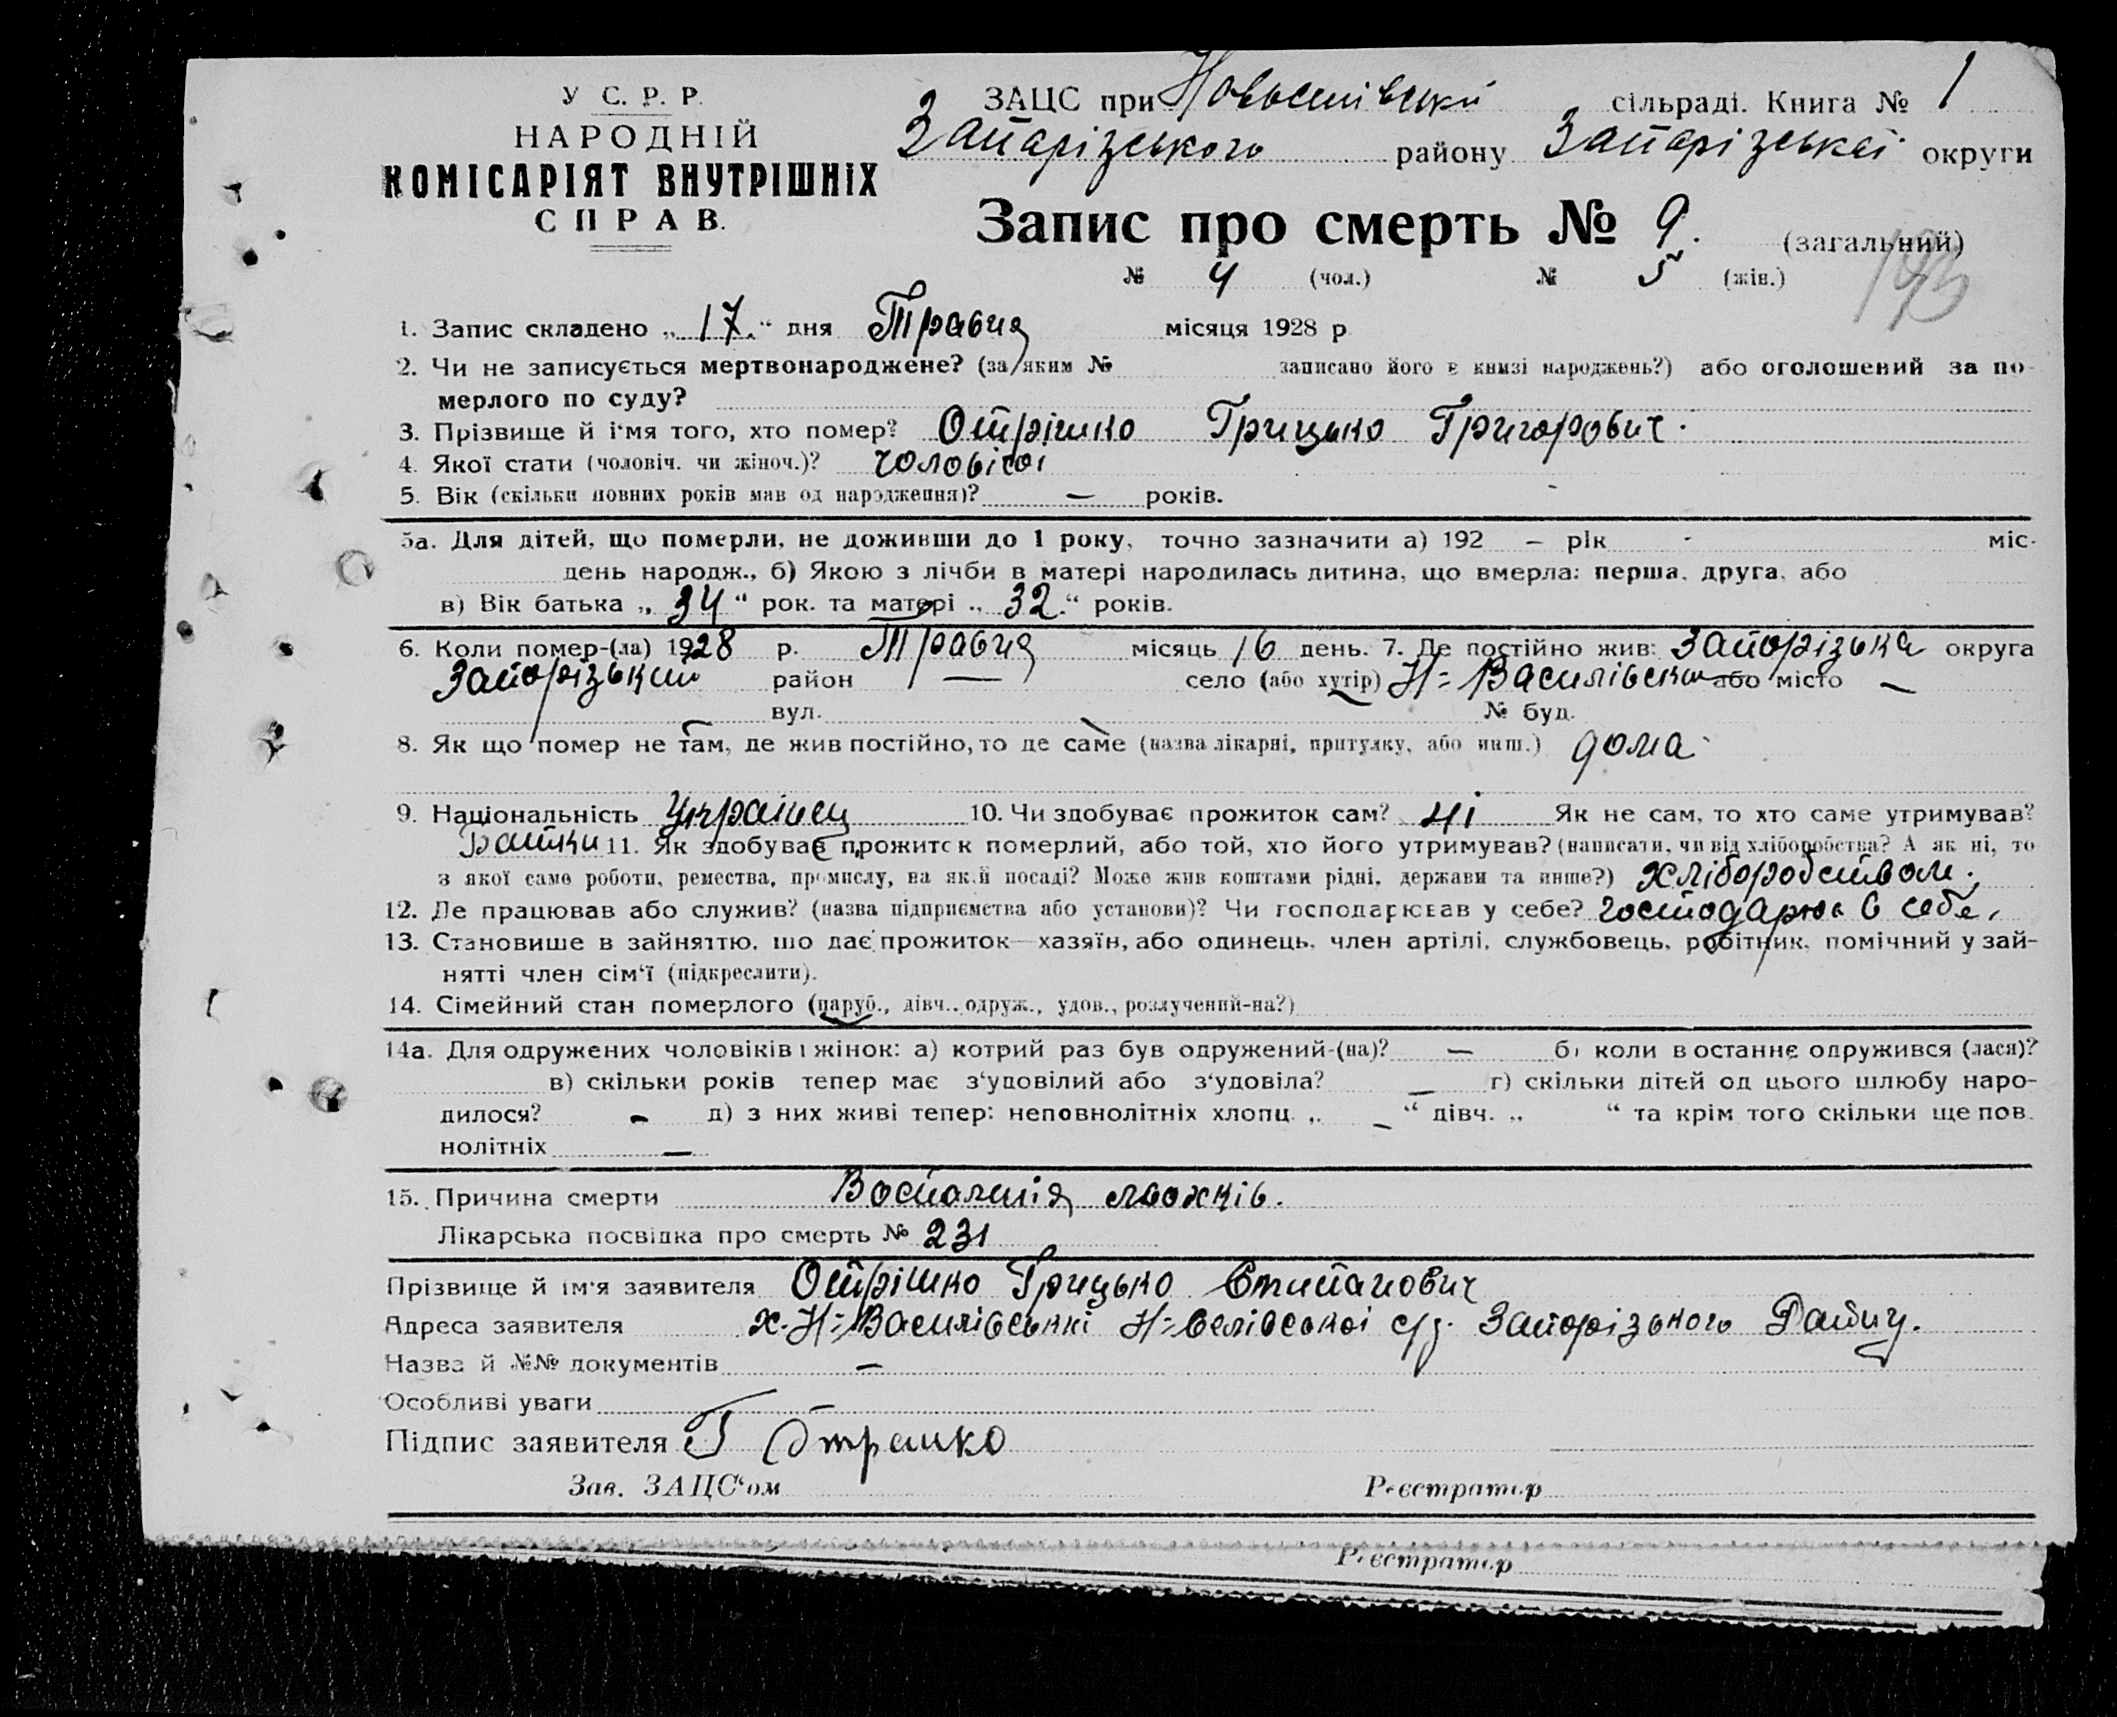 У С. Р. Р.
НАРОДНІЙ
КОМІСАРІЯТ ВНУТРІШНІХ
СПРАВ.
ЗАЦС при сільраді. Книга № 1
Запарізського району Запарізськаі округи
Запис про смерть № 9. (загальний)
№ 4 (чол.) № 5 (жін.)
193
1. Запис складено „17.“ дня Травня місяця 1928 р
2. Чи не записується мертвонароджене? (за яким № записано його в книзі народжень?) або оголошений за по-
мерлого по суду?
3. Прізвище й ім'я того, хто помер? Отрішко Грицько Григорович.
4. Якої стати (чоловіч. чи жіноч.)? чоловічоі
5. Вік (скільки повних років мав од народження)? — років.
5а. Для дітей, що померли, не доживши до 1 року, точно зазначити а) 192 – рік - міс.
день народж., б) Якою з лічби в матері народилась дитина, що вмерла: перша, друга, або
в) Вік батька „34“ рок. та матері „32.“ років.
6. Коли помер-(ла) 1928 р. Травня місяць 16 день. 7. Де постійно жив: Запорізька округа
Запорізький район — село (або хутір) Н=Василівський або місто –
вул. № буд.
8. Як що помер не там, де жив постійно, то де саме (назва лікарні, притулку, або инш.) дома
9. Національність Українец 10. Чи здобуває прожиток сам? ні Як не сам, то хто саме утримував?
Батьки 11. Як здобував прожиток померлий, або той, хто його утримував? (написати, чи від хліборобства? А як ні, то
з якої саме роботи, ремества, промислу, на якій посаді? Може жив коштами рідні, держави та инше?) хліборобством.
12. Де працював або служив? (назва підприємства або установи)? Чи господарював у себе? господарює в себе,
13. Становище в зайняттю, що дає прожиток—хазяїн, або одинець, член артілі, службовець, робітник, помічний у зай-
нятті член сім'ї (підкреслити).
14. Сімейний стан померлого (паруб., дівч., одруж., удов., розлучений-на?)
14а. Для одружених чоловіків і жінок: а) котрий раз був одружений-(на)? — б) коли в останнє одружився (лася)?
в) скільки років тепер має з'удовілий або з'удовіла? — г) скільки дітей од цього шлюбу наро-
дилося? - д) з них живі тепер: неповнолітніх хлопц. „ – “ дівч. „ “ та крім того скільки ще пов.
нолітніх —
15. Причина смерти Воспалиня мозжків.
Лікарська посвідка про смерть № 231
Прізвище й ім'я заявителя Отрішко Грицько Стипанович
Адреса заявителя х. Н=Василівські Н=Селівськоі с/р. Запорізького Району.
Назва й №№ документів —
Особливі уваги
Підпис заявителя Г Отрешко
Зав. ЗАЦС'ом Реєстратор
Реєстратор